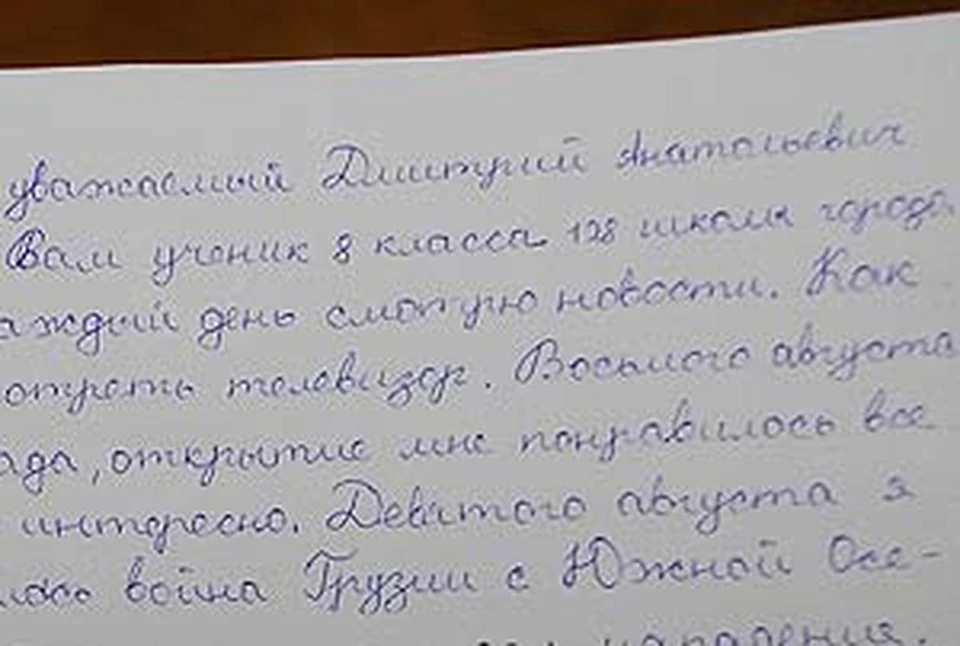 уважаемый Дмитрий Анатольевич
Вам ученик 8 класса 128 школы города
аждый день смотрю новости. Как
отреть телевизор. Восьмого августа
ада, открытие мне понравилось все
интересно. Девятого августа я
лась война Грузии с Южной Осе-
нападения.